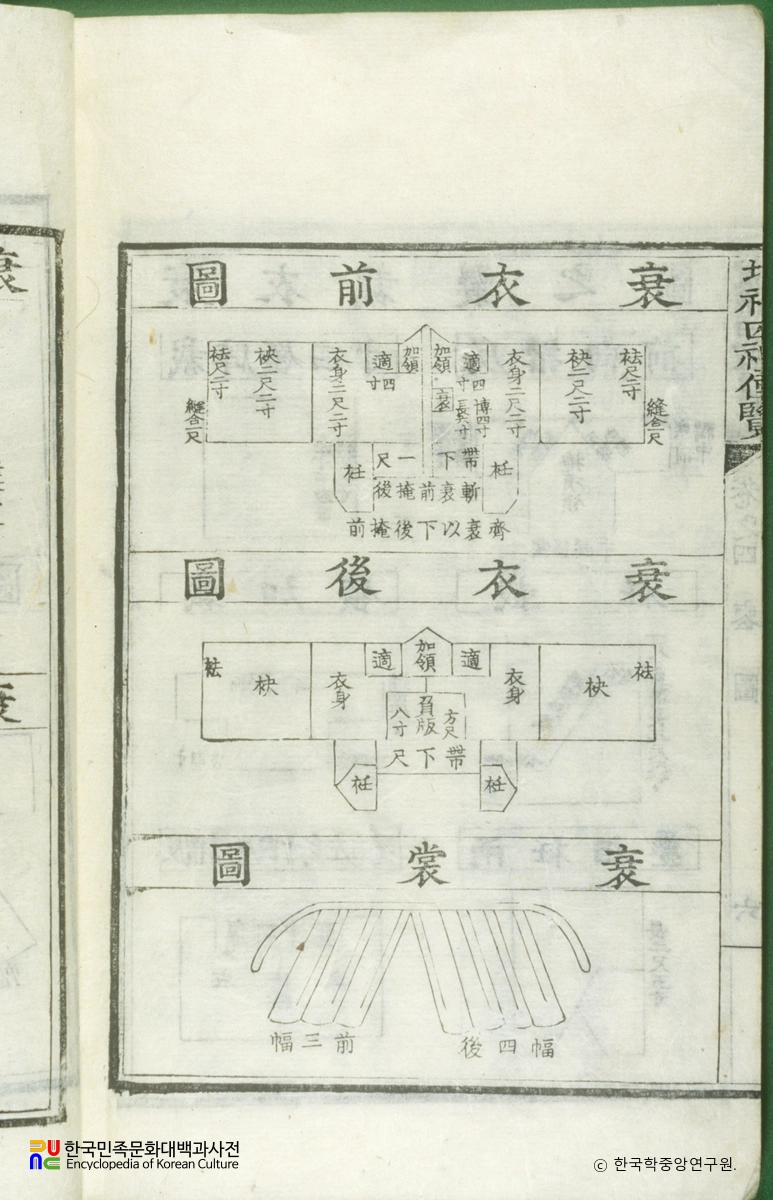 衰衣前圖
袪尺二寸
縫合一尺
袂二尺二寸
衣身二尺二寸
適四寸
博四寸
加領
衰
長六寸
加領
適四寸
衣身二尺二寸
袂二尺二寸
袪尺二寸
縫合一尺
帶下一尺
衽
衽
斬衰前掩後
齊衰以下後掩前
衰衣後圖
袪
袂
衣身
適
加領
適
衣身
袂
袪
負版
方尺八寸
帶下尺
衽
衽
衰裳圖
幅四後
前三幅
四禮便覽
卷之四
圖
六
衰
한국민족문화대백과사전
Encyclopedia of Korean Culture
ⓒ 한국학중앙연구원.